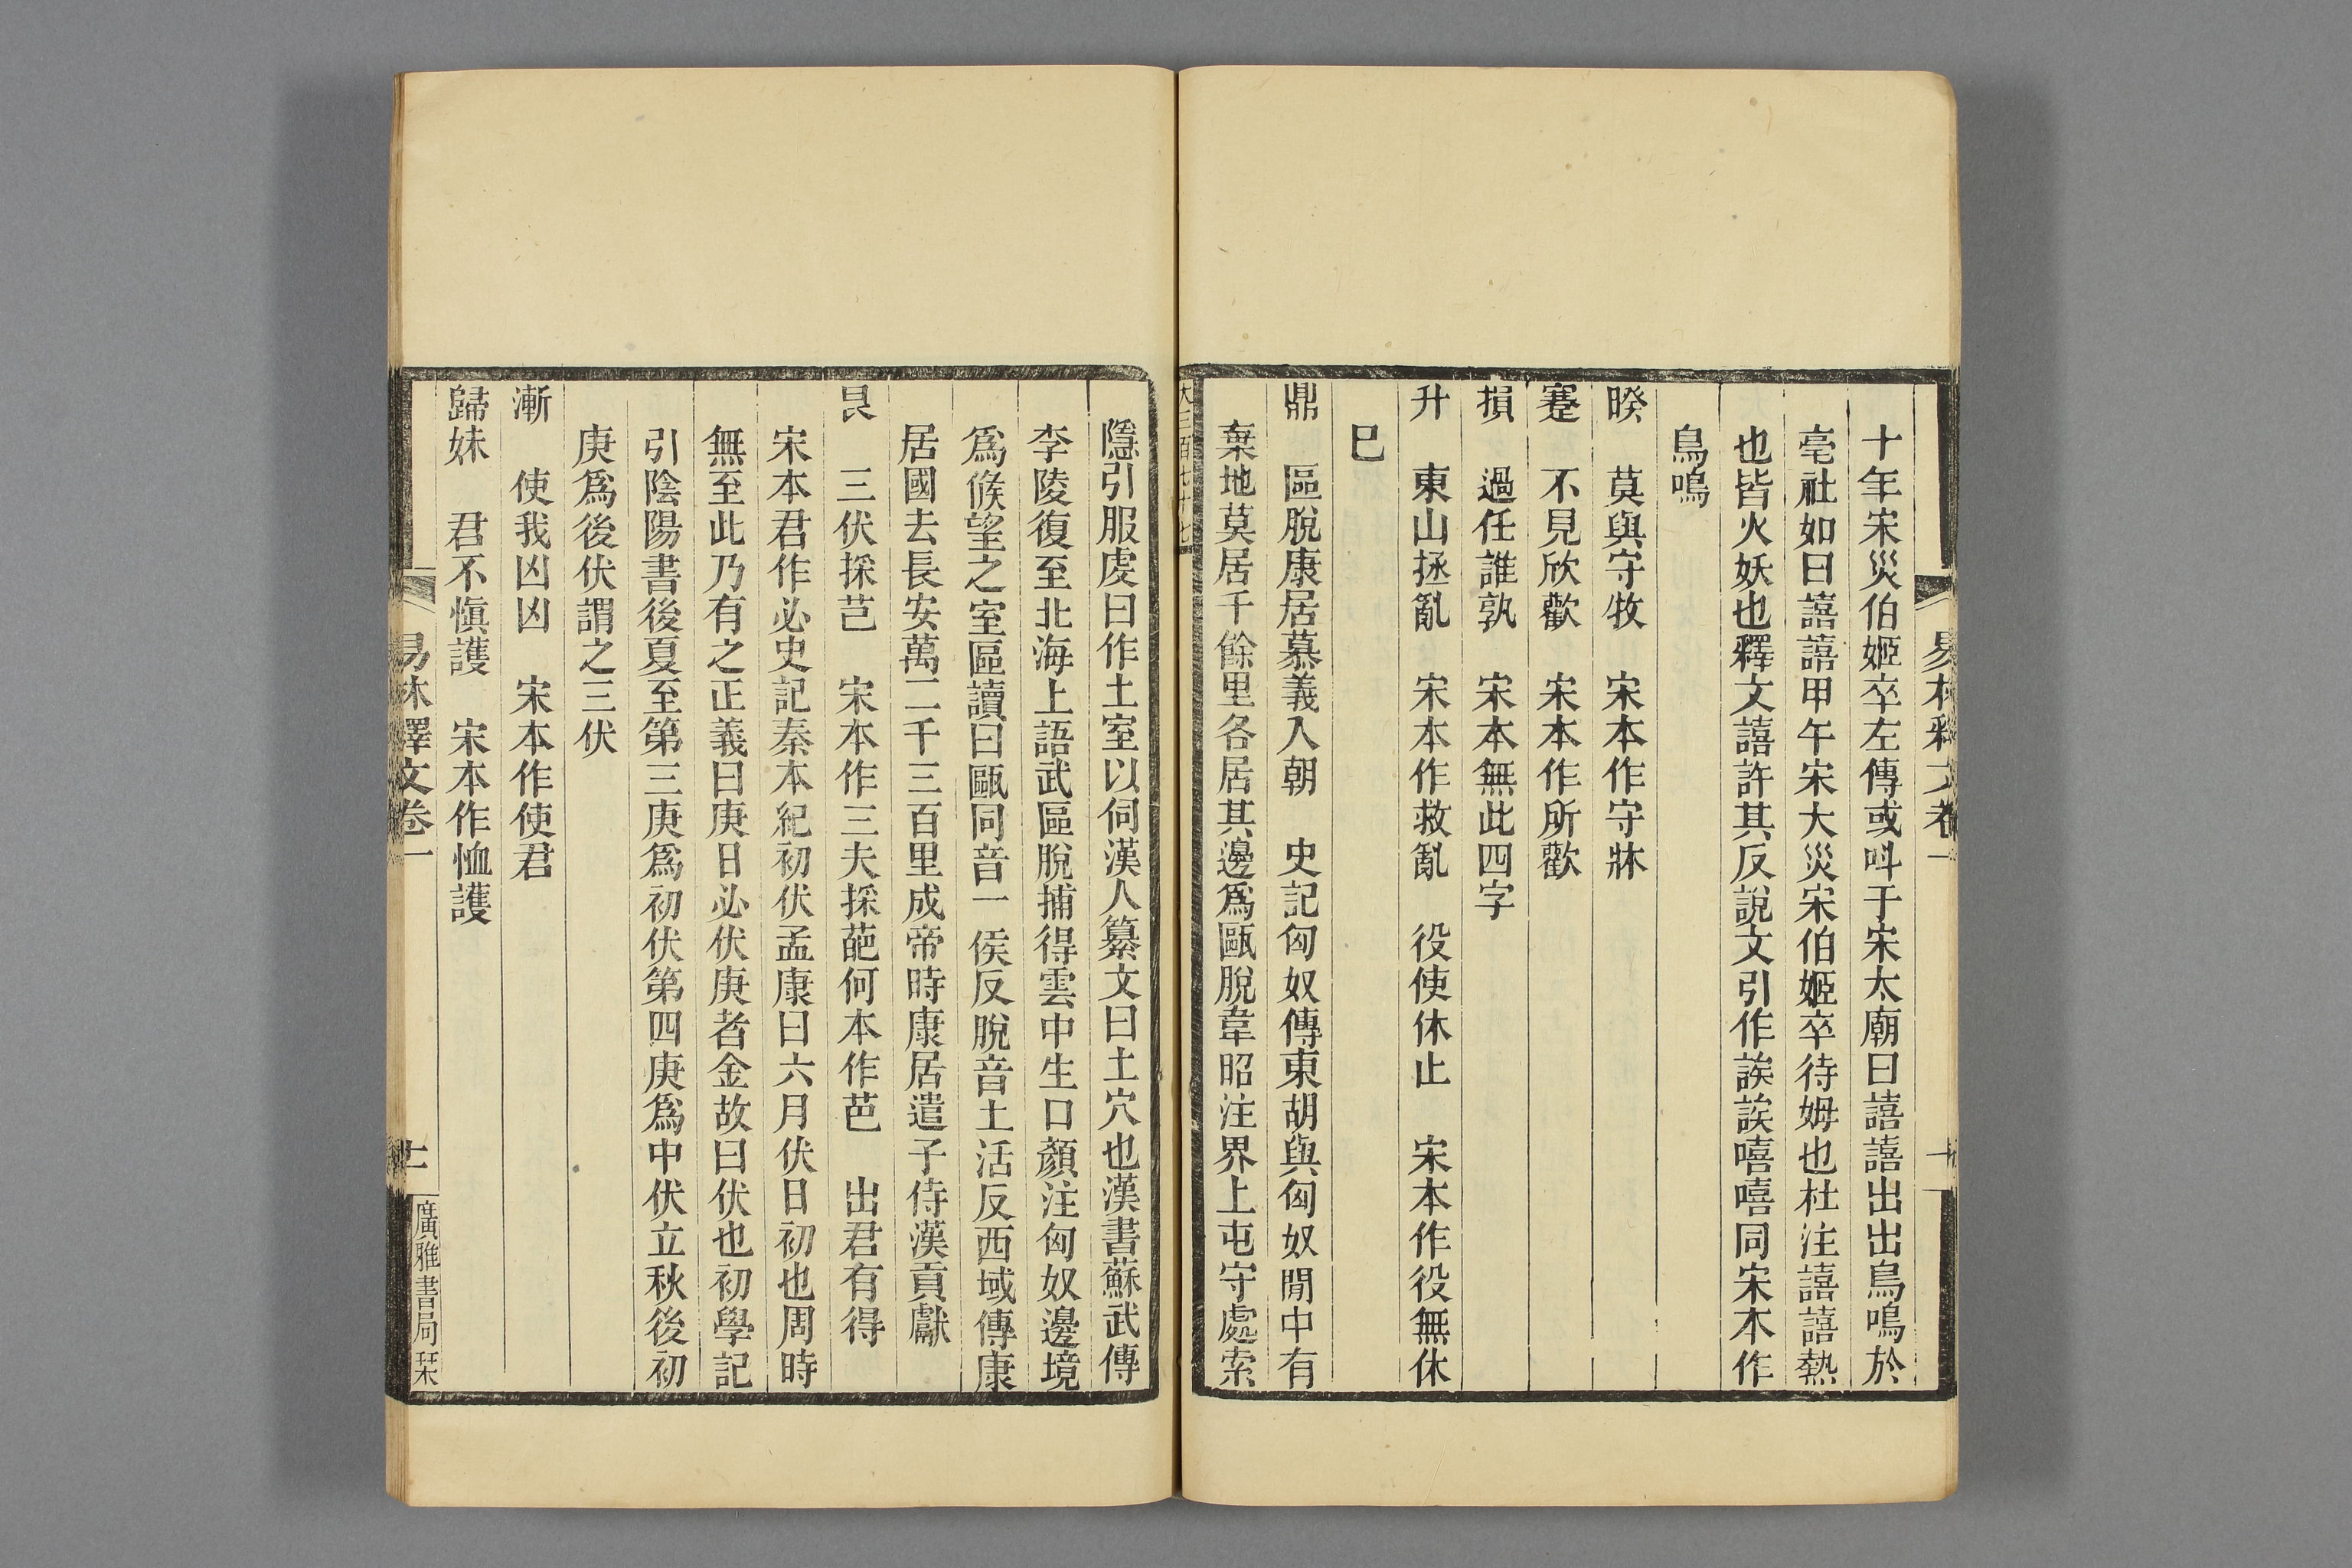 十年宋災伯姬卒左傳或叫于宋太廟曰譆譆出出鳥鳴於
亳社如曰譆譆甲午宋大災宋伯姬卒待姆也杜注譆譆熱
也皆火妖也釋文譆許其反說文引作誒誒嘻嘻同宋本作
鳥鳴
睽　莫與守牧　宋本作守牀
蹇　不見欣歡　宋本作所歡
損　過任誰孰　宋本無此四字
升　東山拯亂　宋本作救亂　役使休止　宋本作役無休
巳
鼎　區脫康居慕義入朝　史記匈奴傳東胡與匈奴閒中有
棄地莫居千餘里各居其邊爲甌脫韋昭注界上屯守處索
隱引服虔曰作土室以伺漢人纂文曰土穴也漢書蘇武傳
李陵復至北海上語武區脫捕得雲中生口顏注匈奴邊境
爲候望之室區讀曰甌同音一侯反脫音土活反西域傳康
居國去長安萬二千三百里成帝時康居遣子侍漢貢獻
艮　三伏採芑　宋本作三夫採葩何本作芭　出君有得
宋本君作必史記秦本紀初伏孟康曰六月伏日初也周時
無至此乃有之正義曰庚日必伏庚者金故曰伏也初學記
引陰陽書後夏至第三庚爲初伏第四庚爲中伏立秋後初
庚爲後伏謂之三伏
漸　使我凶凶　宋本作使君
歸妹　君不愼護　宋本作恤護
易林釋文卷一
十二
廣雅書局栞